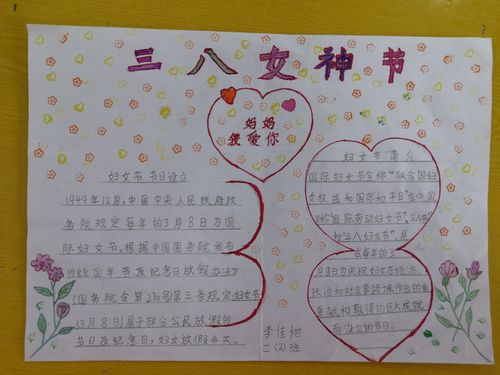 三八女神节
妈妈
我爱你
妇女节 节日设立
1949年12月,中国中央人民政府政
务院规定每年的3月8日为国
际妇女节。根据中国国务院发布
的《全国年节及纪念日放假办法》
(国务院令第270号)第三条规定,妇女节
(3月8日)属于部分公民放假的
节日及纪念日,妇女放假半天。
妇女节简介
国际妇女节全称"联合国妇
女权益和国际和平日"在中国
又称"国际劳动妇女节""三八节"
和"三八妇女节",是
在每年的3
月8日为庆祝妇女在经济、
政治和社会等领域作出的重要
贡献和取得的巨大成就
而设立的节日。
李佳怡
二(2)班